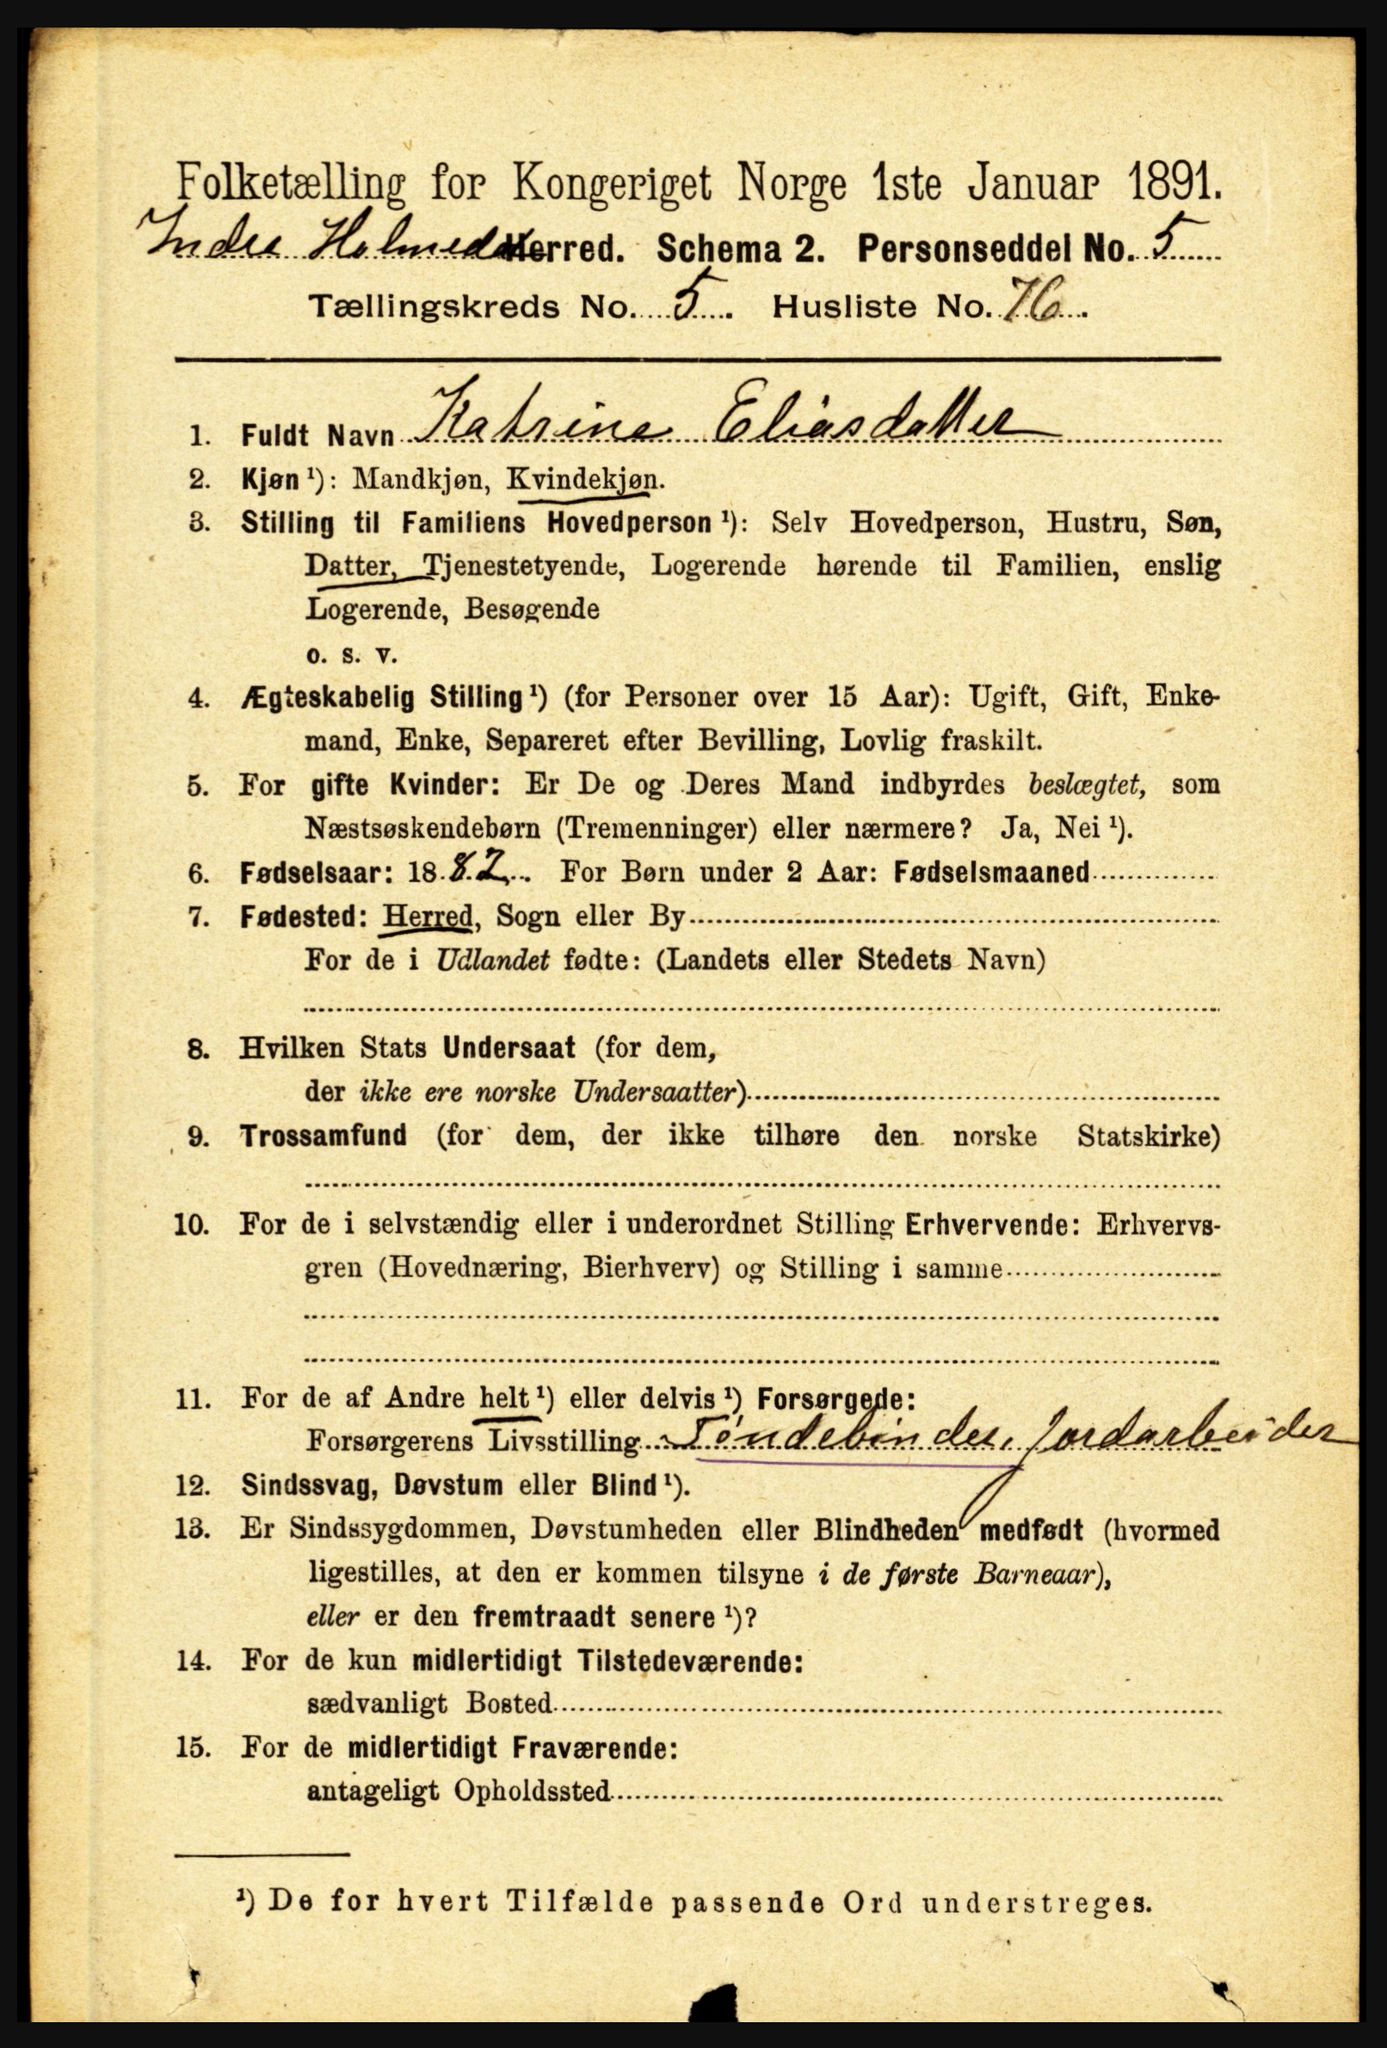 Folketælling for Kongeriget Norge 1ste Januar 1891.
Indre Holmedal Herred. Schema 2. Personseddel No. 5
Tællingskreds No. 5. Husliste No. 76.
1. Fuldt Navn Katrine Eliasdatter
2. Kjøn ¹): Mandkjøn, Kvindekjøn.
3. Stilling til Familiens Hovedperson ¹): Selv Hovedperson, Hustru, Søn,
Datter, Tjenestetyende, Logerende hørende til Familien, enslig
Logerende, Besøgende
o. s. v.
4. Ægteskabelig Stilling ¹) (for Personer over 15 Aar): Ugift, Gift, Enke-
mand, Enke, Separeret efter Bevilling, Lovlig fraskilt.
5. For gifte Kvinder: Er De og Deres Mand indbyrdes beslægtet, som
Næstsøskendebørn (Tremenninger) eller nærmere? Ja, Nei ¹).
6. Fødselsaar: 1882. For Børn under 2 Aar: Fødselsmaaned
7. Fødested: Herred, Sogn eller By
For de i Udlandet fødte: (Landets eller Stedets Navn)
8. Hvilken Stats Undersaat (for dem,
der ikke ere norske Undersaatter)
9. Trossamfund (for dem, der ikke tilhøre den norske Statskirke)
10. For de i selvstændig eller i underordnet Stilling Erhvervende: Erhvervs-
gren (Hovednæring, Bierhverv) og Stilling i samme
11. For de af Andre helt ¹) eller delvis ¹) Forsørgede:
Forsørgerens Livsstilling Tøndebinder, Jordarbeider
12. Sindssvag, Døvstum eller Blind ¹).
13. Er Sindssygdommen, Døvstumheden eller Blindheden medfødt (hvormed
ligestilles, at den er kommen tilsyne i de første Barneaar),
eller er den fremtraadt senere ¹)?
14. For de kun midlertidigt Tilstedeværende:
sædvanligt Bosted
15. For de midlertidigt Fraværende:
antageligt Opholdssted
¹) De for hvert Tilfælde passende Ord understreges.